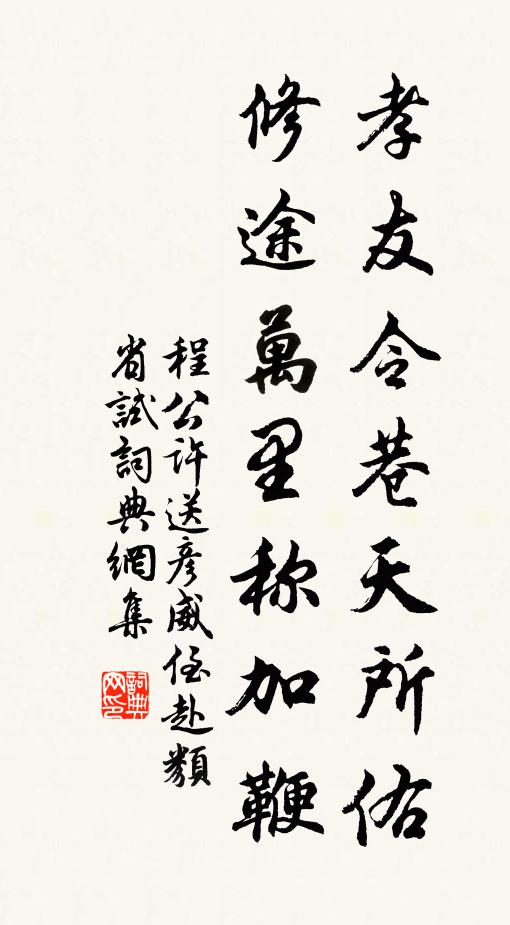 孝友令巷天所佑
修途萬里称加鞭
程公许送彦威侄赴類
省試詞典網集
詞典网印